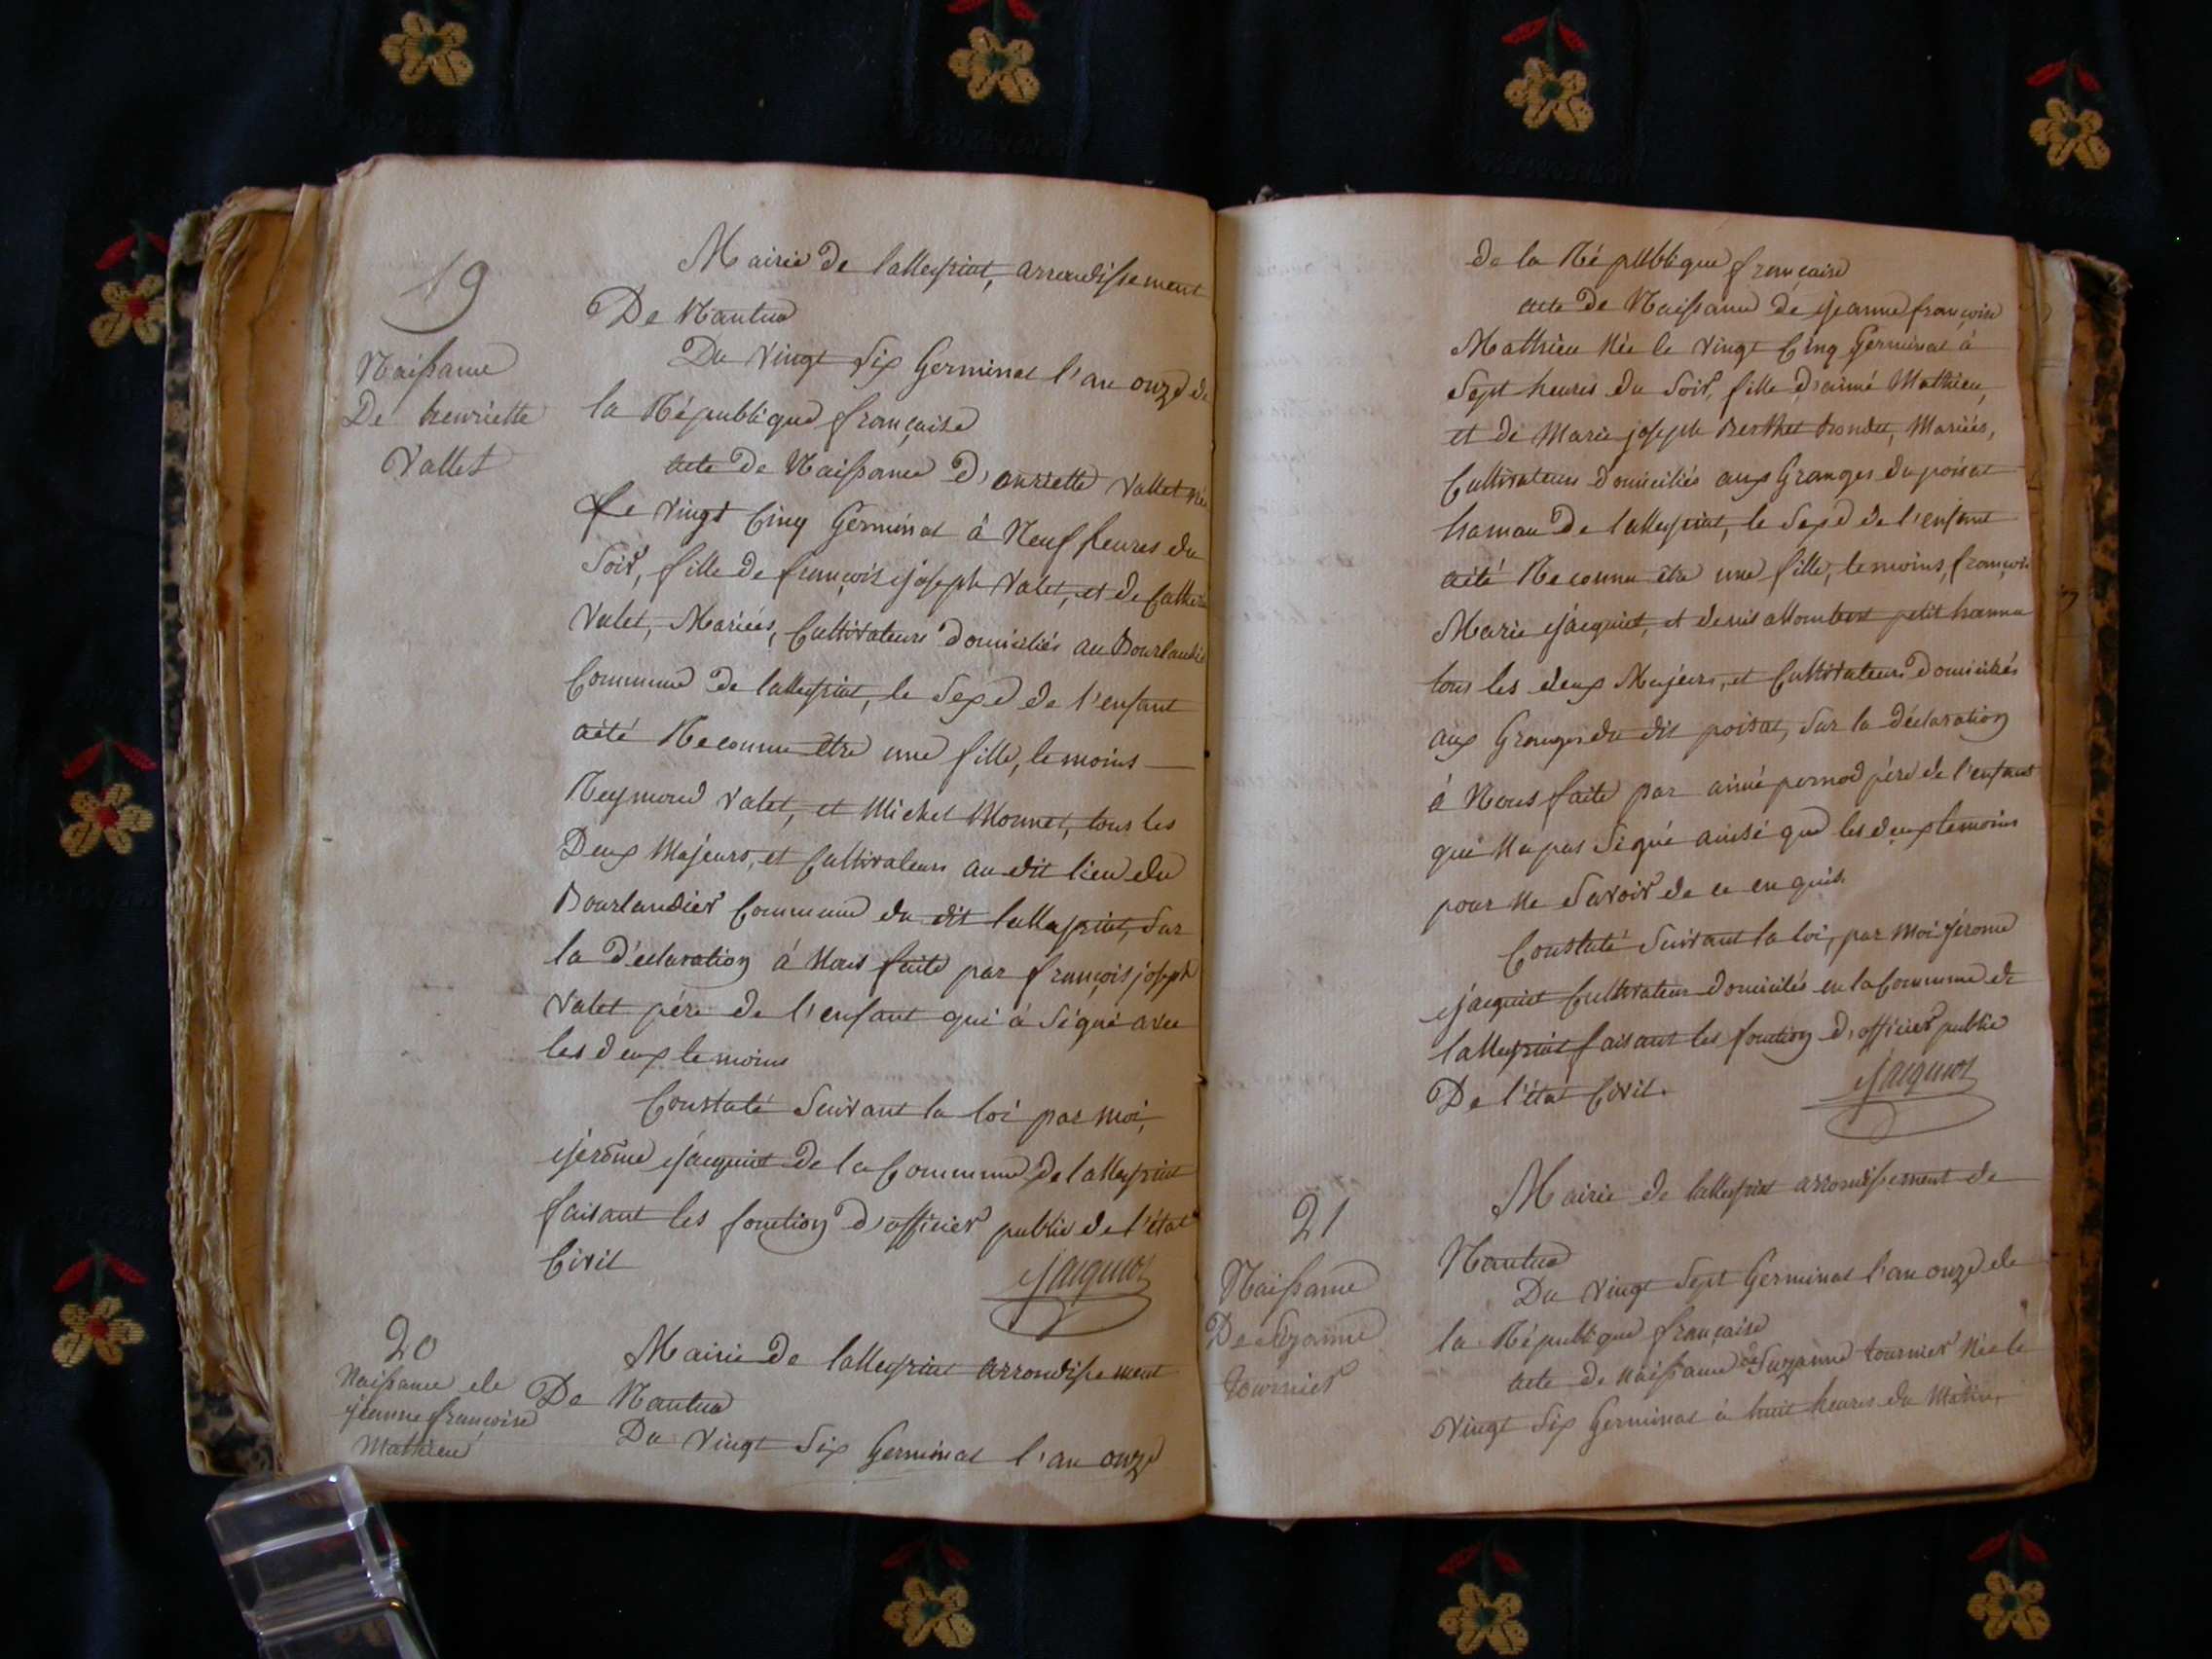 19
Naissance
De henriette
Vallet
Mairie de lalleyriat, arrondissement
De Nantua
Du Vingt Six Germinal l'an onze de
la République française
acte De Naissance D'enriette Vallet née
Le Vingt Cinq Germinal à Neuf heures du
Soir, fille de françois joseph Valet, et de Catherine
Valet, Mariées, Cultivateurs Domiciliés au
Commune De lalleyriat, le Sexe de l'enfant
aété Reconnu être une fille, temoins
Reymond Valet, et Michel Monnet, tous les
Deux Majeurs, et Cultivateurs au dit lieu du
Commune du dit lalleyriat, Sur
la Déclaration à Nous faite par françois joseph
Valet père de l'enfant qui à Signé avec
les deux temoins
Constaté Suivant la loi par moi,
jérome jacquiot De la Commune De lalleyriat
faisant les fonction D'officier public de l'état
Civil
jacquiot
20
Naissance de
jeanne françoise
Mathieu
Mairie De lalleyriat arrondissement
De Nantua
Du Vingt Six Germinal l'an onze
de la République française
acte De Naissance de jeanne françoise
Mathieu Née le Vingt Cinq Germinal à
Sept heures du Soir, fille D'aimé Mathieu,
et de Marie joseph Berthet Mariées,
Cultivateurs Domiciliés aux Granges du poisat
hamau De lalleyriat, le Sexe de l'enfant
aété Reconnu être une fille, temoins, françois
Marie jacquiot, et denis allombert petit homme
tous les deux Majeurs, et Cultivateurs Domiciliés
aux Granges du dit poisat, Sur la déclaration
à Nous faite par aimé pernod père de l'enfant
qui Na pas Signé ainsi que les deux temoins
pour Ne Savoir de ce enquis.
Constaté Suivant la loi, par Moi jérome
jacquiot Cultivateur Domiciliés en la Commune de
lalleyriat faisant les fonction D'officier public
De l'état Civil.
jacquiot
21
Naissance
De Suzanne
tournier
Mairie de lalleyriat arrondissement de
Nantua
Du Vingt Sept Germinal l'an onze de
la République française
acte de Naissance de Suzanne tournier Née le
Vingt Six Germinal à huit heures du Matin,